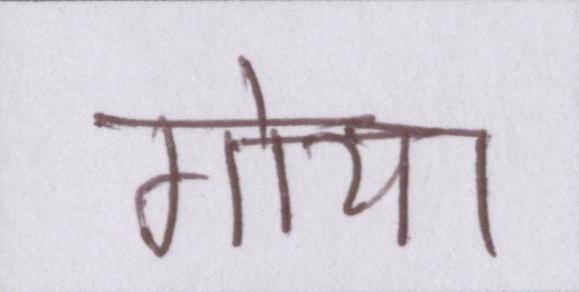 गोया